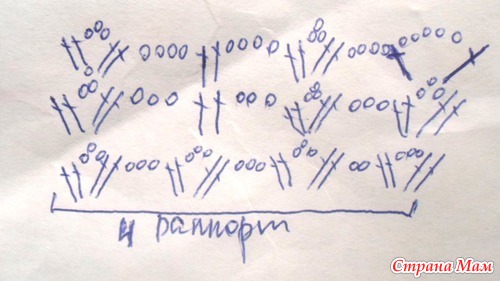 4 раппорт
Страна Мам